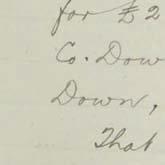 for £2
Co. Dow
Down,
That